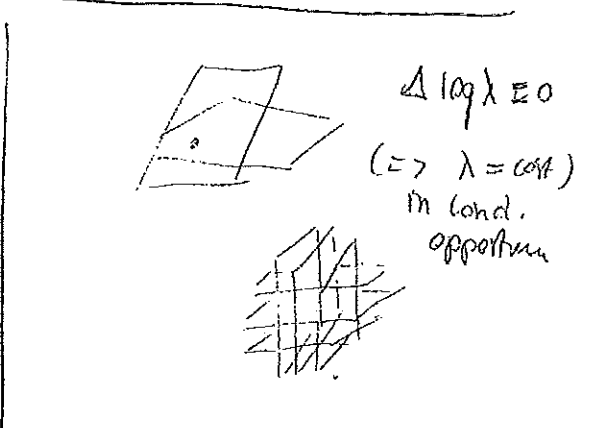 Δ log λ ≡ 0
(=> λ = cost)
in cond.
opportune